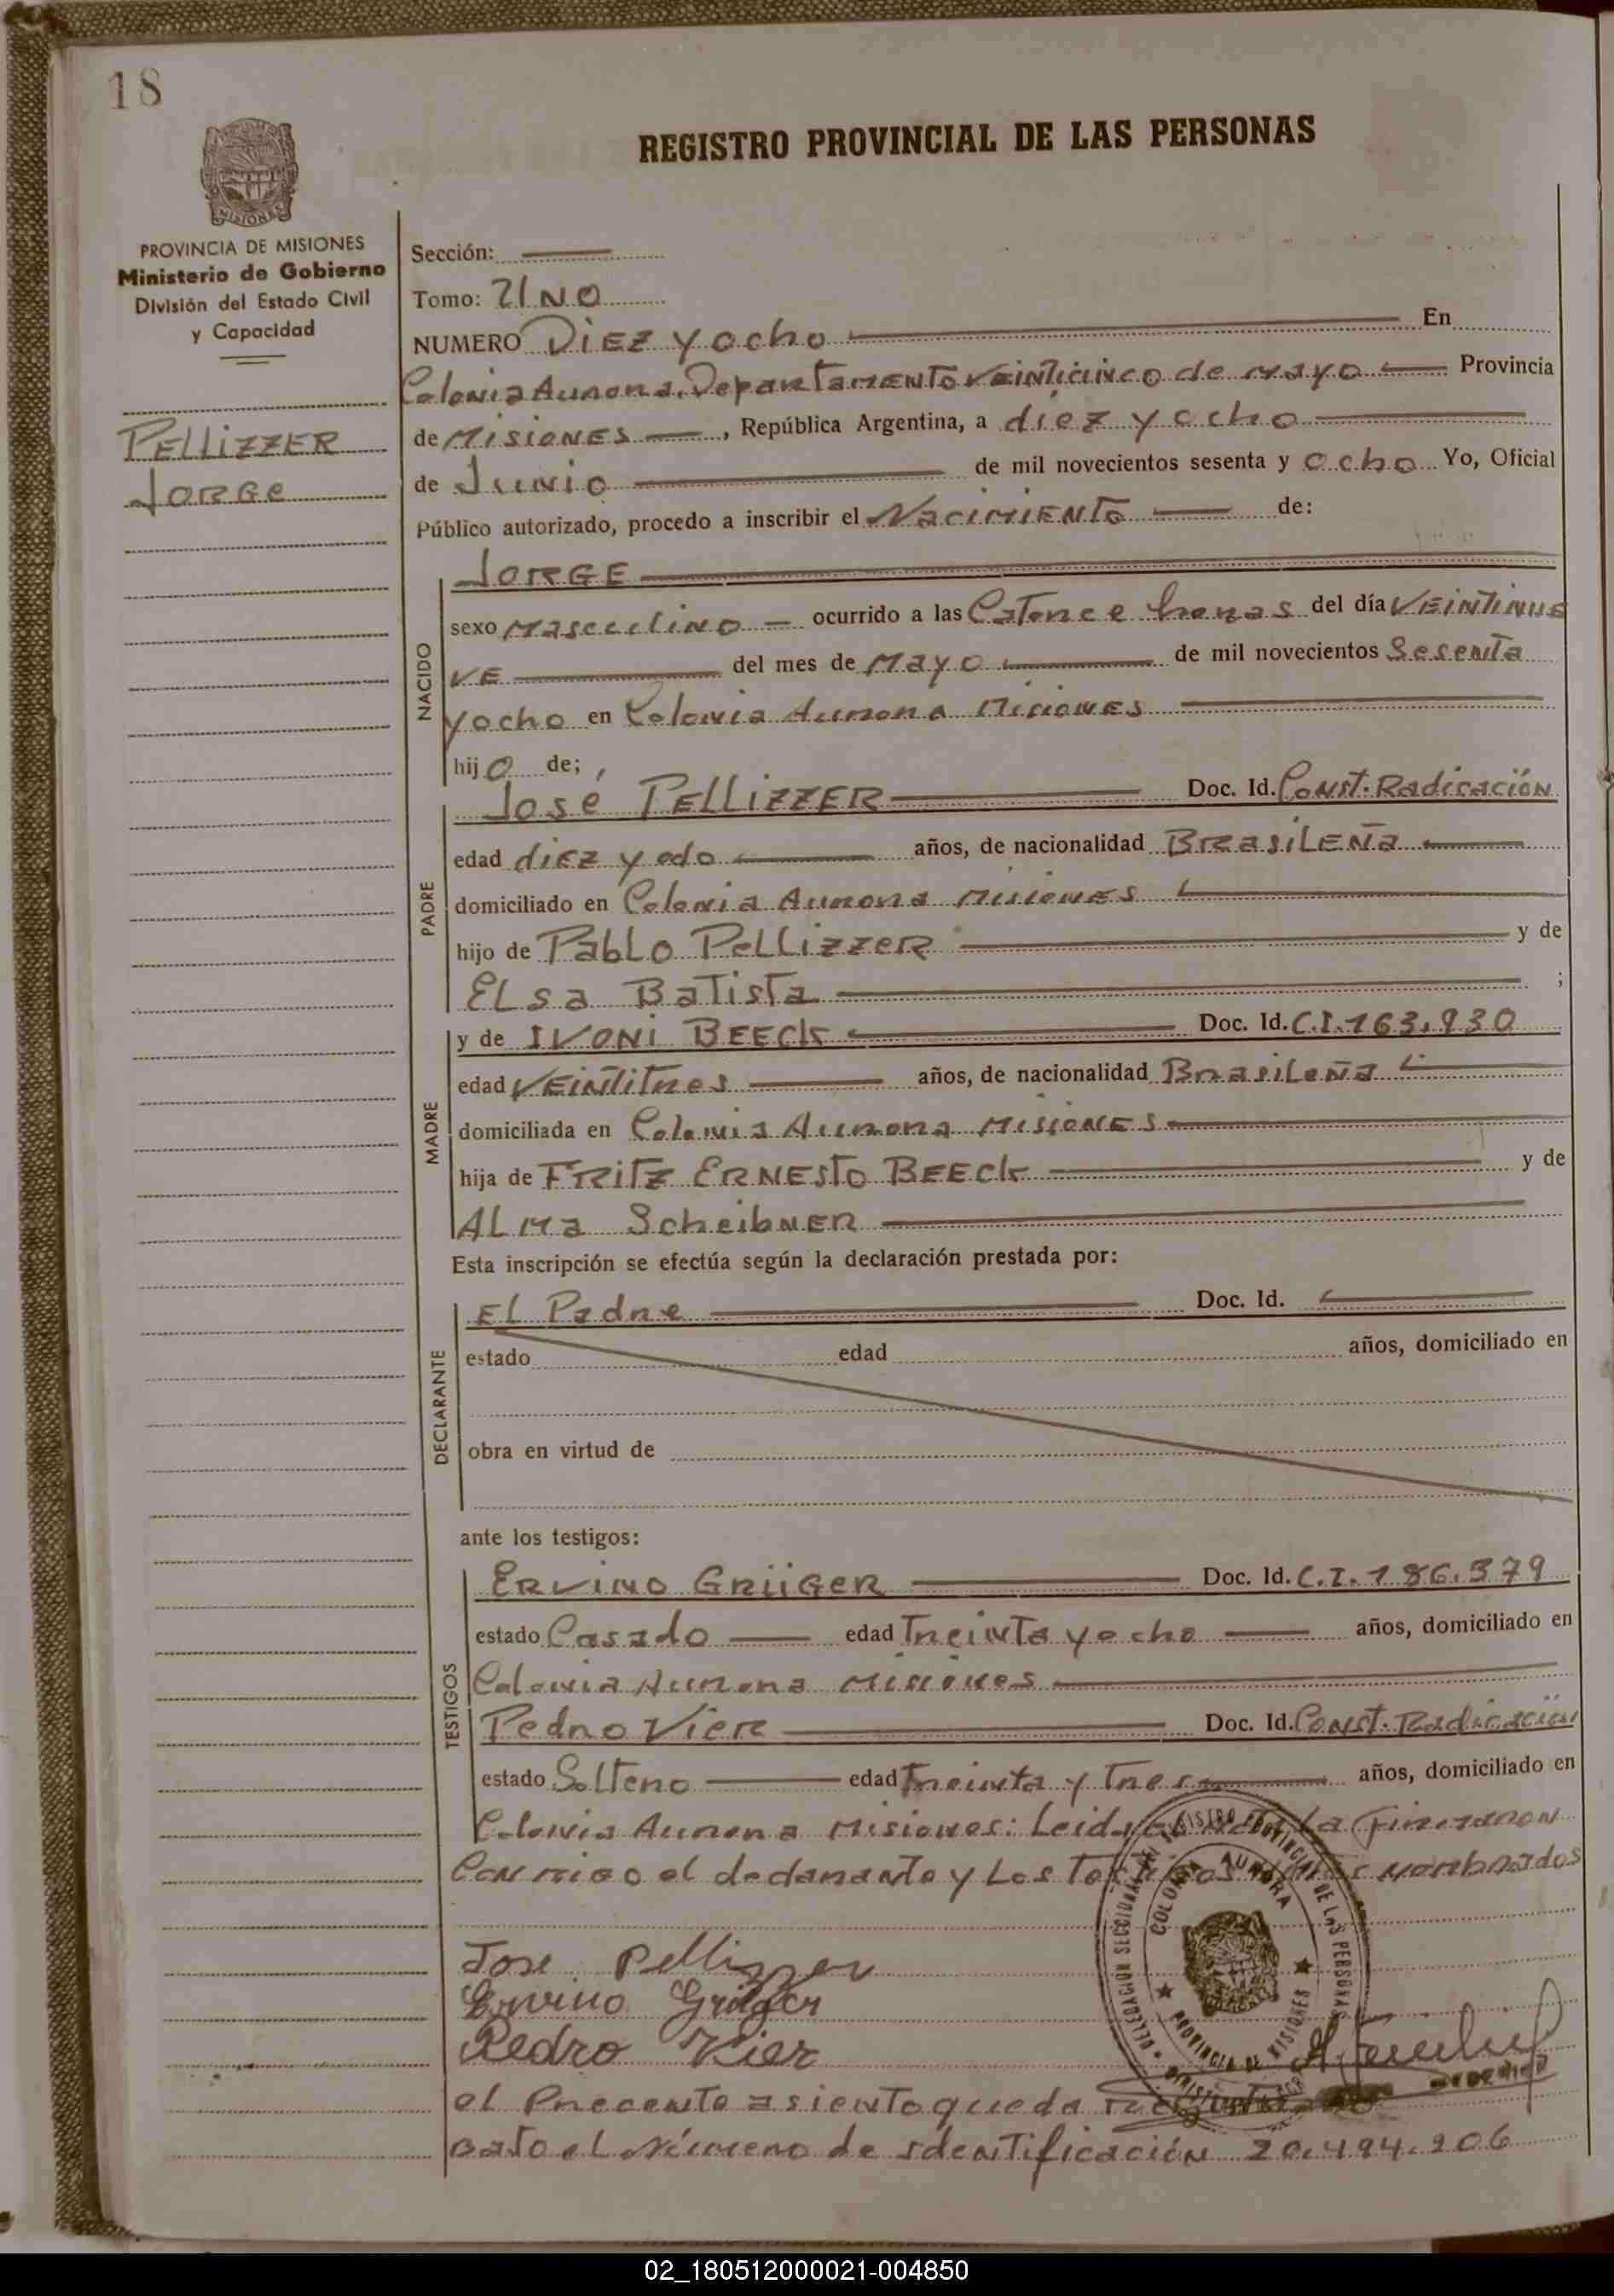 18
REGISTRO PROVINCIAL DE LAS PERSONAS
MISIONES
PROVINCIA DE MISIONES
Ministerio de Gobierno
División del Estado Civil
y Capacidad
PELLIZZER
Jorge
Sección:
Tomo: UNO
NUMERO Diez y ocho En
Colonia Aurora, Departamento Veinticinco de mayo Provincia
de Misiones, República Argentina, a diez y ocho
de Junio de mil novecientos sesenta y ocho Yo, Oficial
Público autorizado, procedo a inscribir el Nacimiento de:
NACIDO
JORGE
sexo Masculino ocurrido a las Catorce horas del día VEINTINUE
VE del mes de Mayo de mil novecientos Sesenta
y ocho en Colonia Aurora Misiones
hijo de;
PADRE
José PELLIZZER Doc. Id. Const. Radicación
edad diez y odo años, de nacionalidad Brasileña
domiciliado en Colonia Aurora Misiones
hijo de Pablo Pellizzer y de
Elsa Batista ;
MADRE
y de IVONI BEECK Doc. Id. C.I. 163.930
edad Veintitres años, de nacionalidad Brasileña
domiciliada en Colonia Aurora Misiones
hija de FRITZ ERNESTO BEECK y de
ALMA ScheibNER
Esta inscripción se efectúa según la declaración prestada por:
DECLARANTE
El Padre Doc. Id.
estado edad años, domiciliado en
obra en virtud de
ante los testigos:
TESTIGOS
ERVINO GRÜGER Doc. Id. C.I. 186.379
estado Casado edad Treinta y ocho años, domiciliado en
Colonia Aurora Misiones
Pedro Vier Doc. Id. Const. Radicación
estado Soltero edad Treinta y Tres años, domiciliado en
Colonia Aurora Misiones: Leida el Acta La Firmaron
Conmigo el declarante y Los Testigos nombrados
DELEGACIÓN SECCIONAL REGISTRO PROVINCIAL DE LAS PERSONAS
COLONIA AURORA
PROVINCIA DE MISIONES
Jose Pellizzer
Ervino Grüger
Pedro Vier
el Precente asiento queda
bajo el Número de identificación 20.494.206
02_180512000021-004850